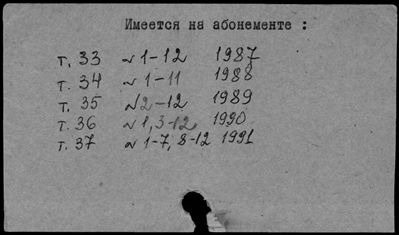 Имеется на абонементе :
т. 33 № 1-12 1987
т. 34 № 1-11 1988
т. 35 № 2-12 1989
т. 36 № 1, 3-12 1990
т. 37 № 1-7, 8-12 1991